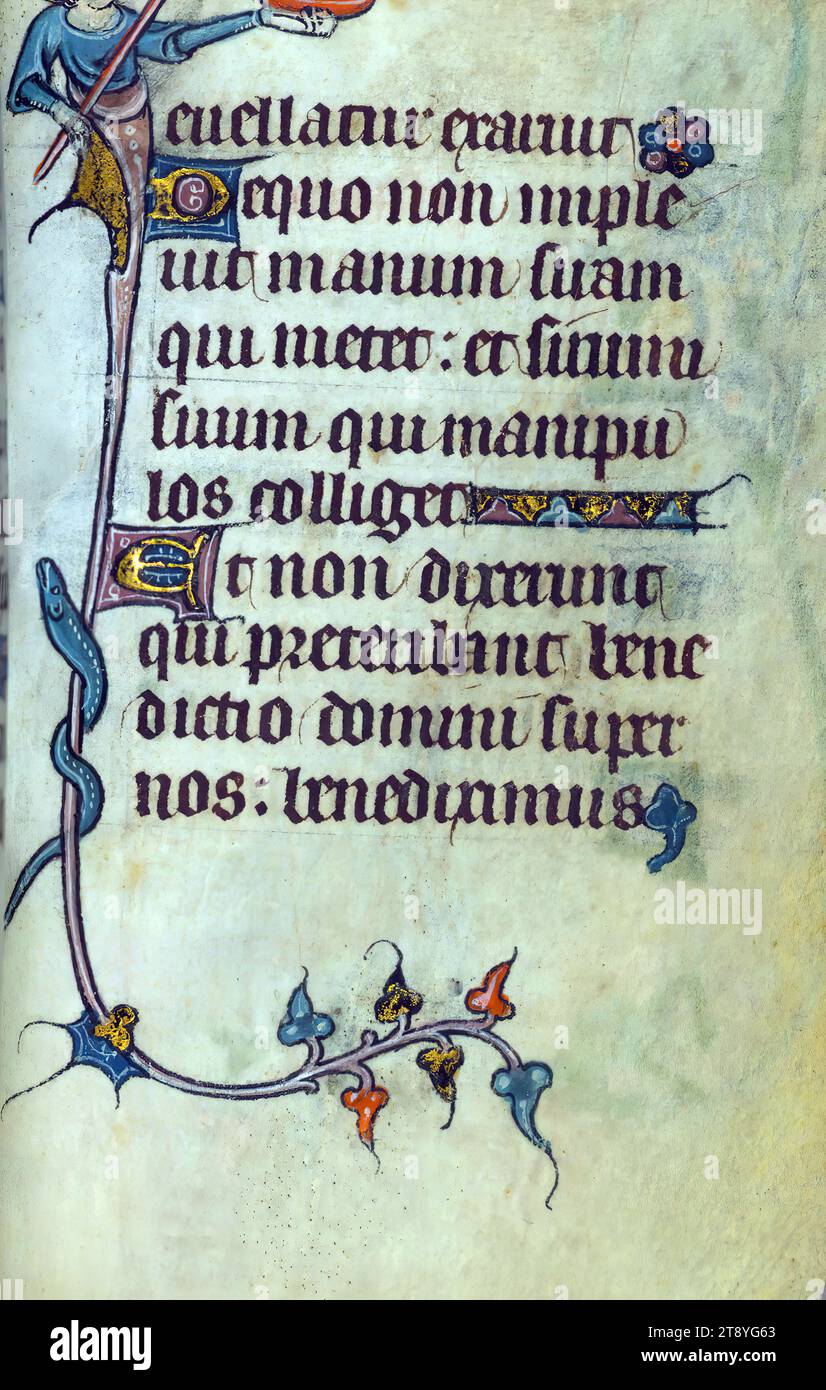 euellatur exaruit
Dequo non imple
uit manum suam
qui metet: et sinum
suum qui manipu
los colliget
Et non dixerunt
qui preteribant bene
dictio domini super
nos: benediximus
alamy
Image ID: 2T8YG63
www.alamy.com